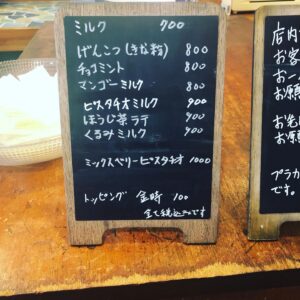 ミルク 700
げんこつ(きな粉) 800
チョコミント 800
マンゴーミルク 800
ピスタチオミルク 900
ほうじ茶ラテ 900
くるみミルク 900
ミックスベリーピスタチオ 1000
トッピング 金時 100
全て税込みです
店内
お客
お一
お願
お先
お願
プラカ